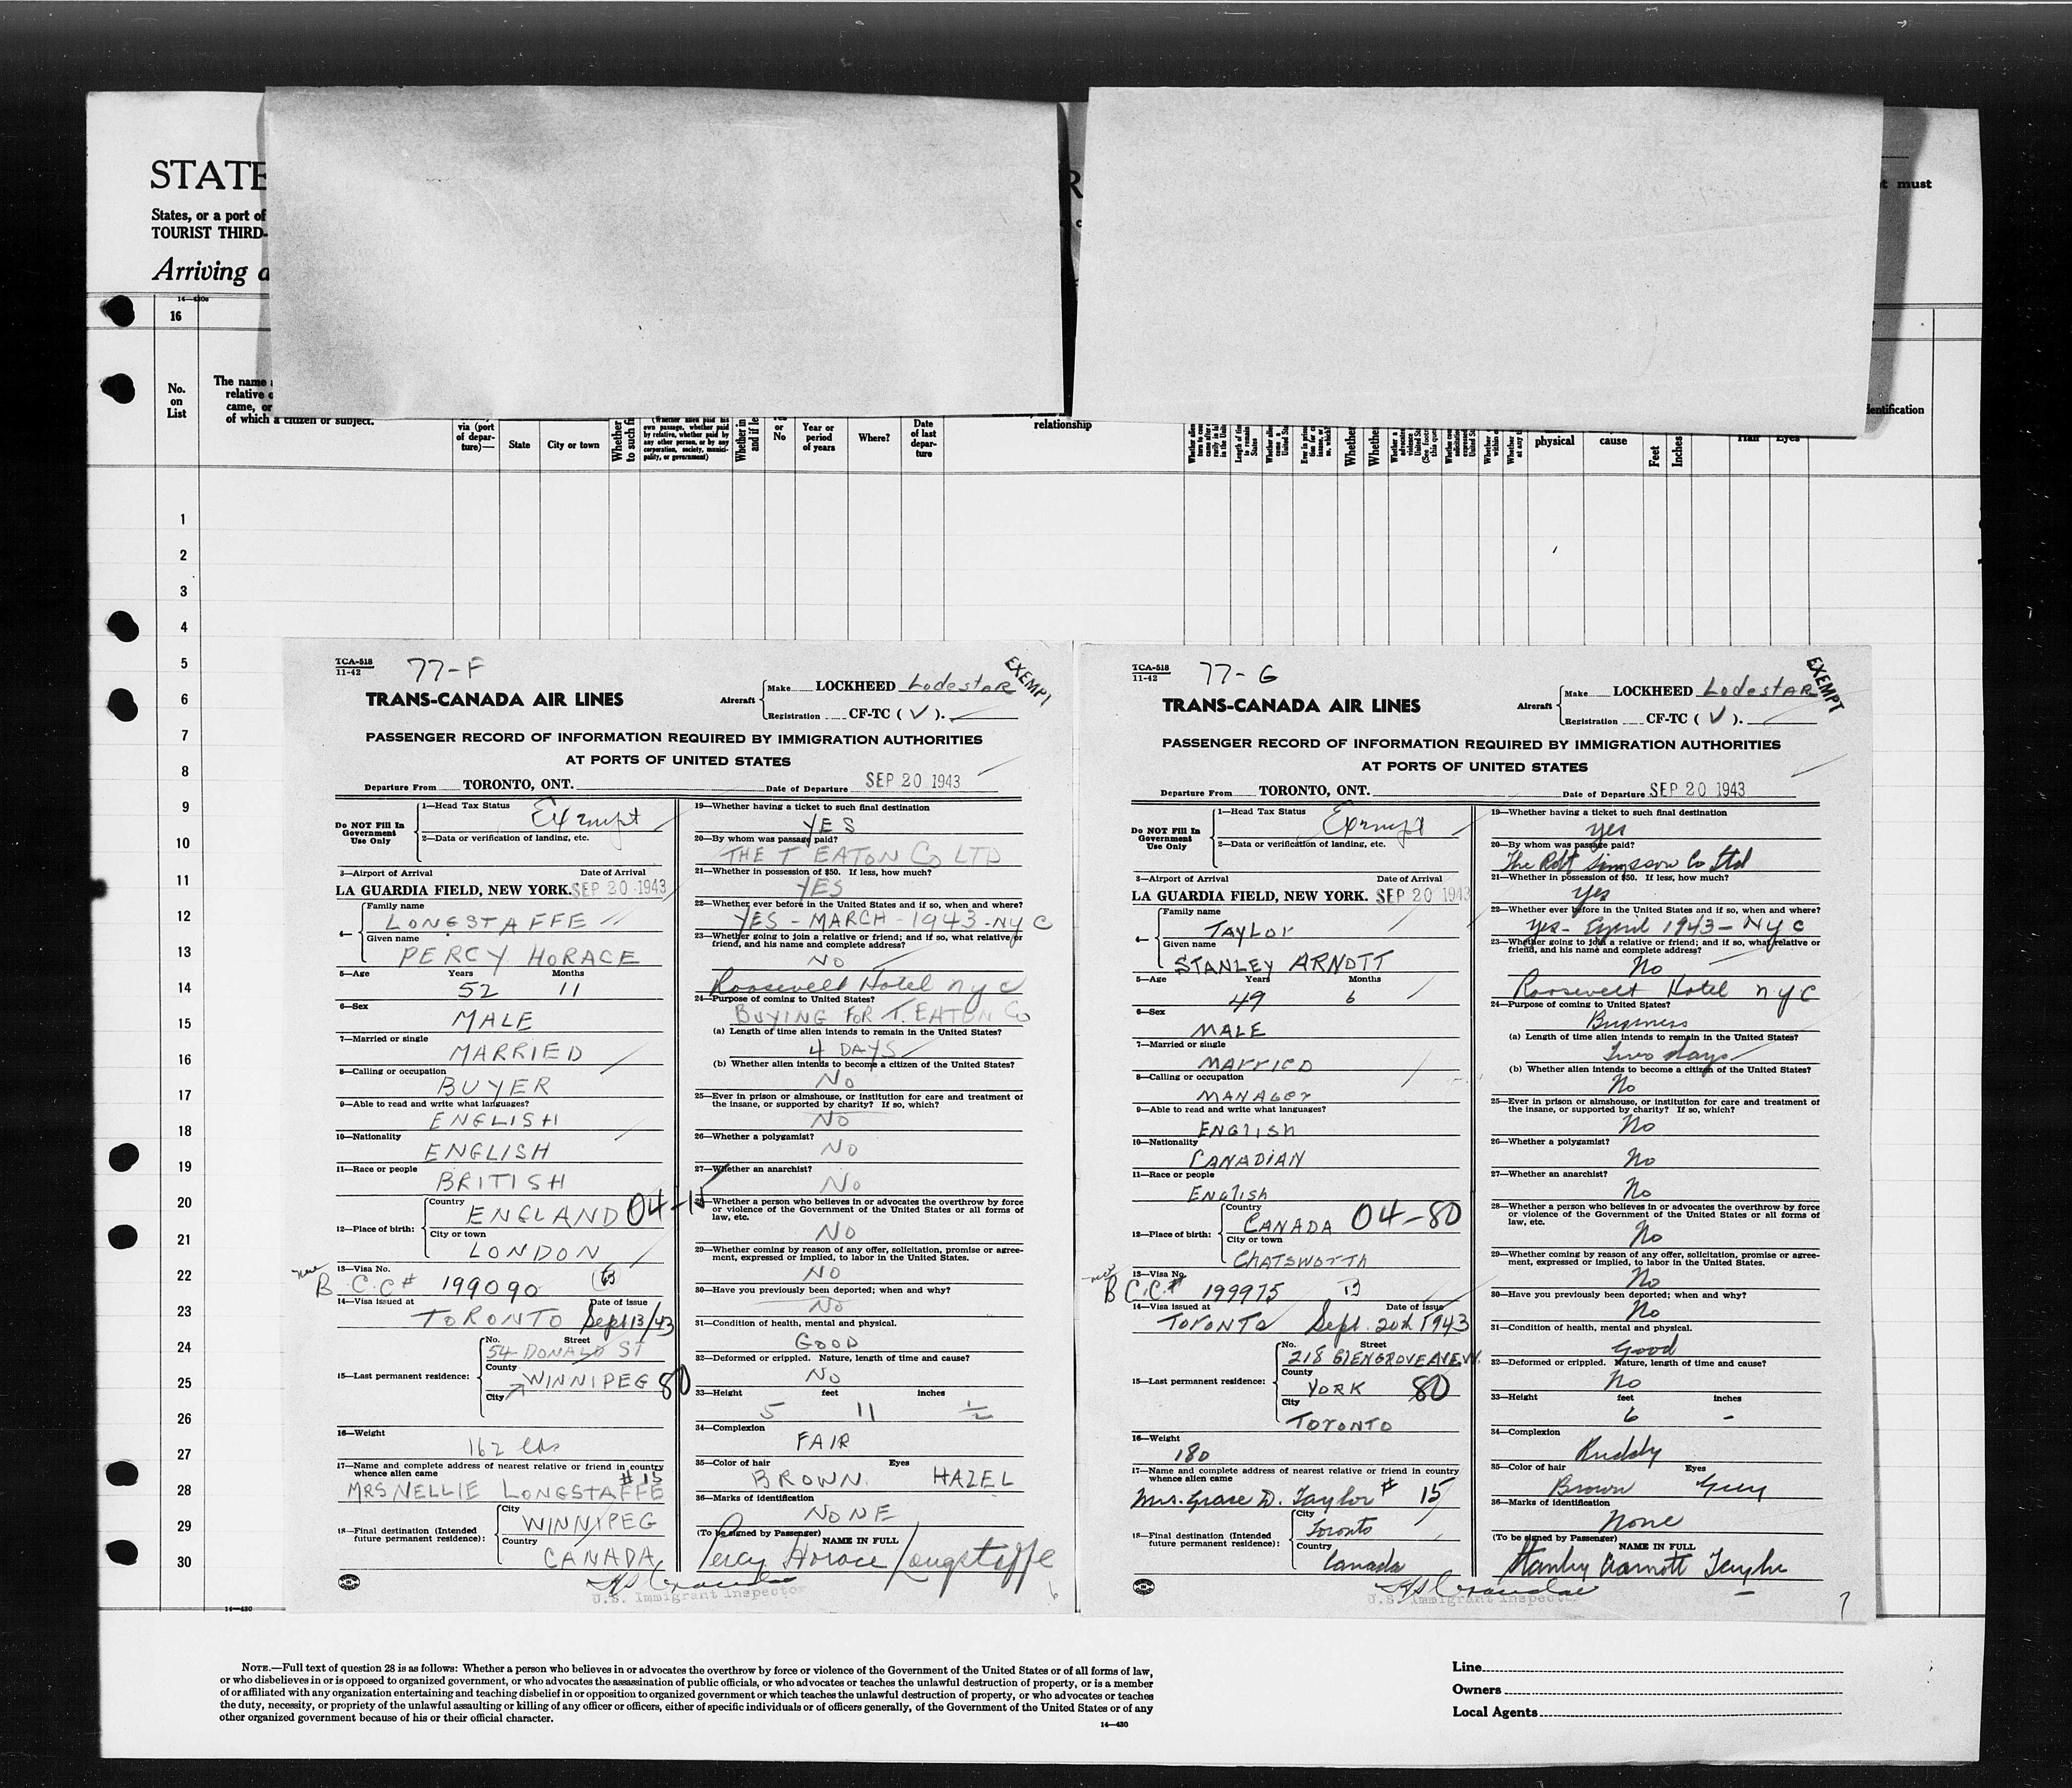 STATE
States, or a port of
TOURIST THIRD-
Arriving a
t must
14—430a
16
No. on List
The name
relative o
came, or
of which a citizen or subject.
via (port of depar- ture)—
State
City or town
Whether
to such fi
(Whether alien paid his own passage, whether paid by relative, whether paid by any other person, or by any corporation, society, munici- pality, or government)
Whether in
and if le
or No
Year or period of years
Where?
Date of last depar- ture
relationship
physical
cause
Feet
Inches
Eyes
dentification
1
2
3
4
5
6
7
8
9
10
11
12
13
14
15
16
17
18
19
20
21
22
23
24
25
26
27
28
29
30
TCA-518
11-42
77-F
EXEMPT
TRANS-CANADA AIR LINES
Aircraft
Make LOCKHEED LodestAR
Registration CF-TC ( V ).
PASSENGER RECORD OF INFORMATION REQUIRED BY IMMIGRATION AUTHORITIES
AT PORTS OF UNITED STATES
Departure From TORONTO, ONT. Date of Departure SEP 20 1943
Do NOT Fill In Government Use Only
1—Head Tax Status Exempt
2—Data or verification of landing, etc.
3—Airport of Arrival Date of Arrival
LA GUARDIA FIELD, NEW YORK. SEP 20 1943
4—
Family name
LONGSTAFFE
Given name
PERCY HORACE
5—Age Years Months
52 11
6—Sex
MALE
7—Married or single
MARRIED
8—Calling or occupation
BUYER
9—Able to read and write what languages?
ENGLISH
10—Nationality
ENGLISH
11—Race or people
BRITISH
12—Place of birth:
Country
ENGLAND 04-15
City or town
LONDON
13—Visa No.
B C.C# 199090 B
14—Visa issued at Date of issue
TORONTO Sept 13/43
15—Last permanent residence:
No. Street
54 DONALD ST
County
WINNIPEG 80
City
16—Weight
162 lbs
17—Name and complete address of nearest relative or friend in country whence alien came
# 15
MRS NELLIE LONGSTAFFE
18—Final destination (Intended future permanent residence):
City
WINNIPEG
Country
CANADA
19—Whether having a ticket to such final destination
YES
20—By whom was passage paid?
THE T EATON Co LTD
21—Whether in possession of $50. If less, how much?
YES
22—Whether ever before in the United States and if so, when and where?
YES - MARCH - 1943 - NYC
23—Whether going to join a relative or friend; and if so, what relative or friend, and his name and complete address?
NO
Roosevelt Hotel nyc
24—Purpose of coming to United States?
BUYING FOR T. EATON Co
(a) Length of time alien intends to remain in the United States?
4 DAYS
(b) Whether alien intends to become a citizen of the United States?
No
25—Ever in prison or almshouse, or institution for care and treatment of the insane, or supported by charity? If so, which?
NO
26—Whether a polygamist?
NO
27—Whether an anarchist?
No
28—Whether a person who believes in or advocates the overthrow by force or violence of the Government of the United States or all forms of law, etc.
NO
29—Whether coming by reason of any offer, solicitation, promise or agree- ment, expressed or implied, to labor in the United States.
NO
30—Have you previously been deported; when and why?
No
31—Condition of health, mental and physical.
GOOD
32—Deformed or crippled. Nature, length of time and cause?
NO
33—Height feet inches
5 11 1/2
34—Complexion
FAIR
35—Color of hair Eyes
BROWN. HAZEL
36—Marks of identification
NONE
(To be signed by Passenger) NAME IN FULL
Percy Horace Longstaffe
U.S. Immigrant Inspector
6
TCA-518
11-42
77-G
EXEMPT
TRANS-CANADA AIR LINES
Aircraft
Make LOCKHEED LodestAR
Registration CF-TC ( V ).
PASSENGER RECORD OF INFORMATION REQUIRED BY IMMIGRATION AUTHORITIES
AT PORTS OF UNITED STATES
Departure From TORONTO, ONT. Date of Departure SEP 20 1943
Do NOT Fill In Government Use Only
1—Head Tax Status Exempt
2—Data or verification of landing, etc.
3—Airport of Arrival Date of Arrival
LA GUARDIA FIELD, NEW YORK. SEP 20 1943
4—
Family name
TAYLOr
Given name
STANLEY ARNOTT
5—Age Years Months
49 6
6—Sex
MALE
7—Married or single
MArrIED
8—Calling or occupation
MANAGEr
9—Able to read and write what languages?
ENGLISH
10—Nationality
CANADIAN
11—Race or people
ENGLISH
12—Place of birth:
Country
CANADA 04-80
City or town
CHATSWOrTH
13—Visa No.
B C.C.# 199975 B
14—Visa issued at Date of issue
TOrONTO Sept. 20th 1943
15—Last permanent residence:
No. Street
218 GLENGROVE AVE.W.
County
YORK 80
City
TOrONTO
16—Weight
180
17—Name and complete address of nearest relative or friend in country whence alien came
Mrs. Grace D. Taylor # 15
18—Final destination (Intended future permanent residence):
City
Toronto
Country
Canada
19—Whether having a ticket to such final destination
yes
20—By whom was passage paid?
The Robt Simpson Co Ltd
21—Whether in possession of $50. If less, how much?
yes
22—Whether ever before in the United States and if so, when and where?
yes - April 1943 - NYC
23—Whether going to join a relative or friend; and if so, what relative or friend, and his name and complete address?
No
Roosevelt Hotel nyc
24—Purpose of coming to United States?
Business
(a) Length of time alien intends to remain in the United States?
Two days
(b) Whether alien intends to become a citizen of the United States?
No
25—Ever in prison or almshouse, or institution for care and treatment of the insane, or supported by charity? If so, which?
No
26—Whether a polygamist?
No
27—Whether an anarchist?
No
28—Whether a person who believes in or advocates the overthrow by force or violence of the Government of the United States or all forms of law, etc.
No
29—Whether coming by reason of any offer, solicitation, promise or agree- ment, expressed or implied, to labor in the United States.
No
30—Have you previously been deported; when and why?
No
31—Condition of health, mental and physical.
Good
32—Deformed or crippled. Nature, length of time and cause?
No
33—Height feet inches
6 -
34—Complexion
Ruddy
35—Color of hair Eyes
Brown Grey
36—Marks of identification
None
(To be signed by Passenger) NAME IN FULL
Stanley Arnott Taylor
U.S. Immigrant Inspector
7
14—430
NOTE.—Full text of question 28 is as follows: Whether a person who believes in or advocates the overthrow by force or violence of the Government of the United States or of all forms of law,
or who disbelieves in or is opposed to organized government, or who advocates the assassination of public officials, or who advocates or teaches the unlawful destruction of property, or is a member
of or affiliated with any organization entertaining and teaching disbelief in or opposition to organized government or which teaches the unlawful destruction of property, or who advocates or teaches
the duty, necessity, or propriety of the unlawful assaulting or killing of any officer or officers, either of specific individuals or of officers generally, of the Government of the United States or of any
other organized government because of his or their official character.
14—430
Line
Owners
Local Agents